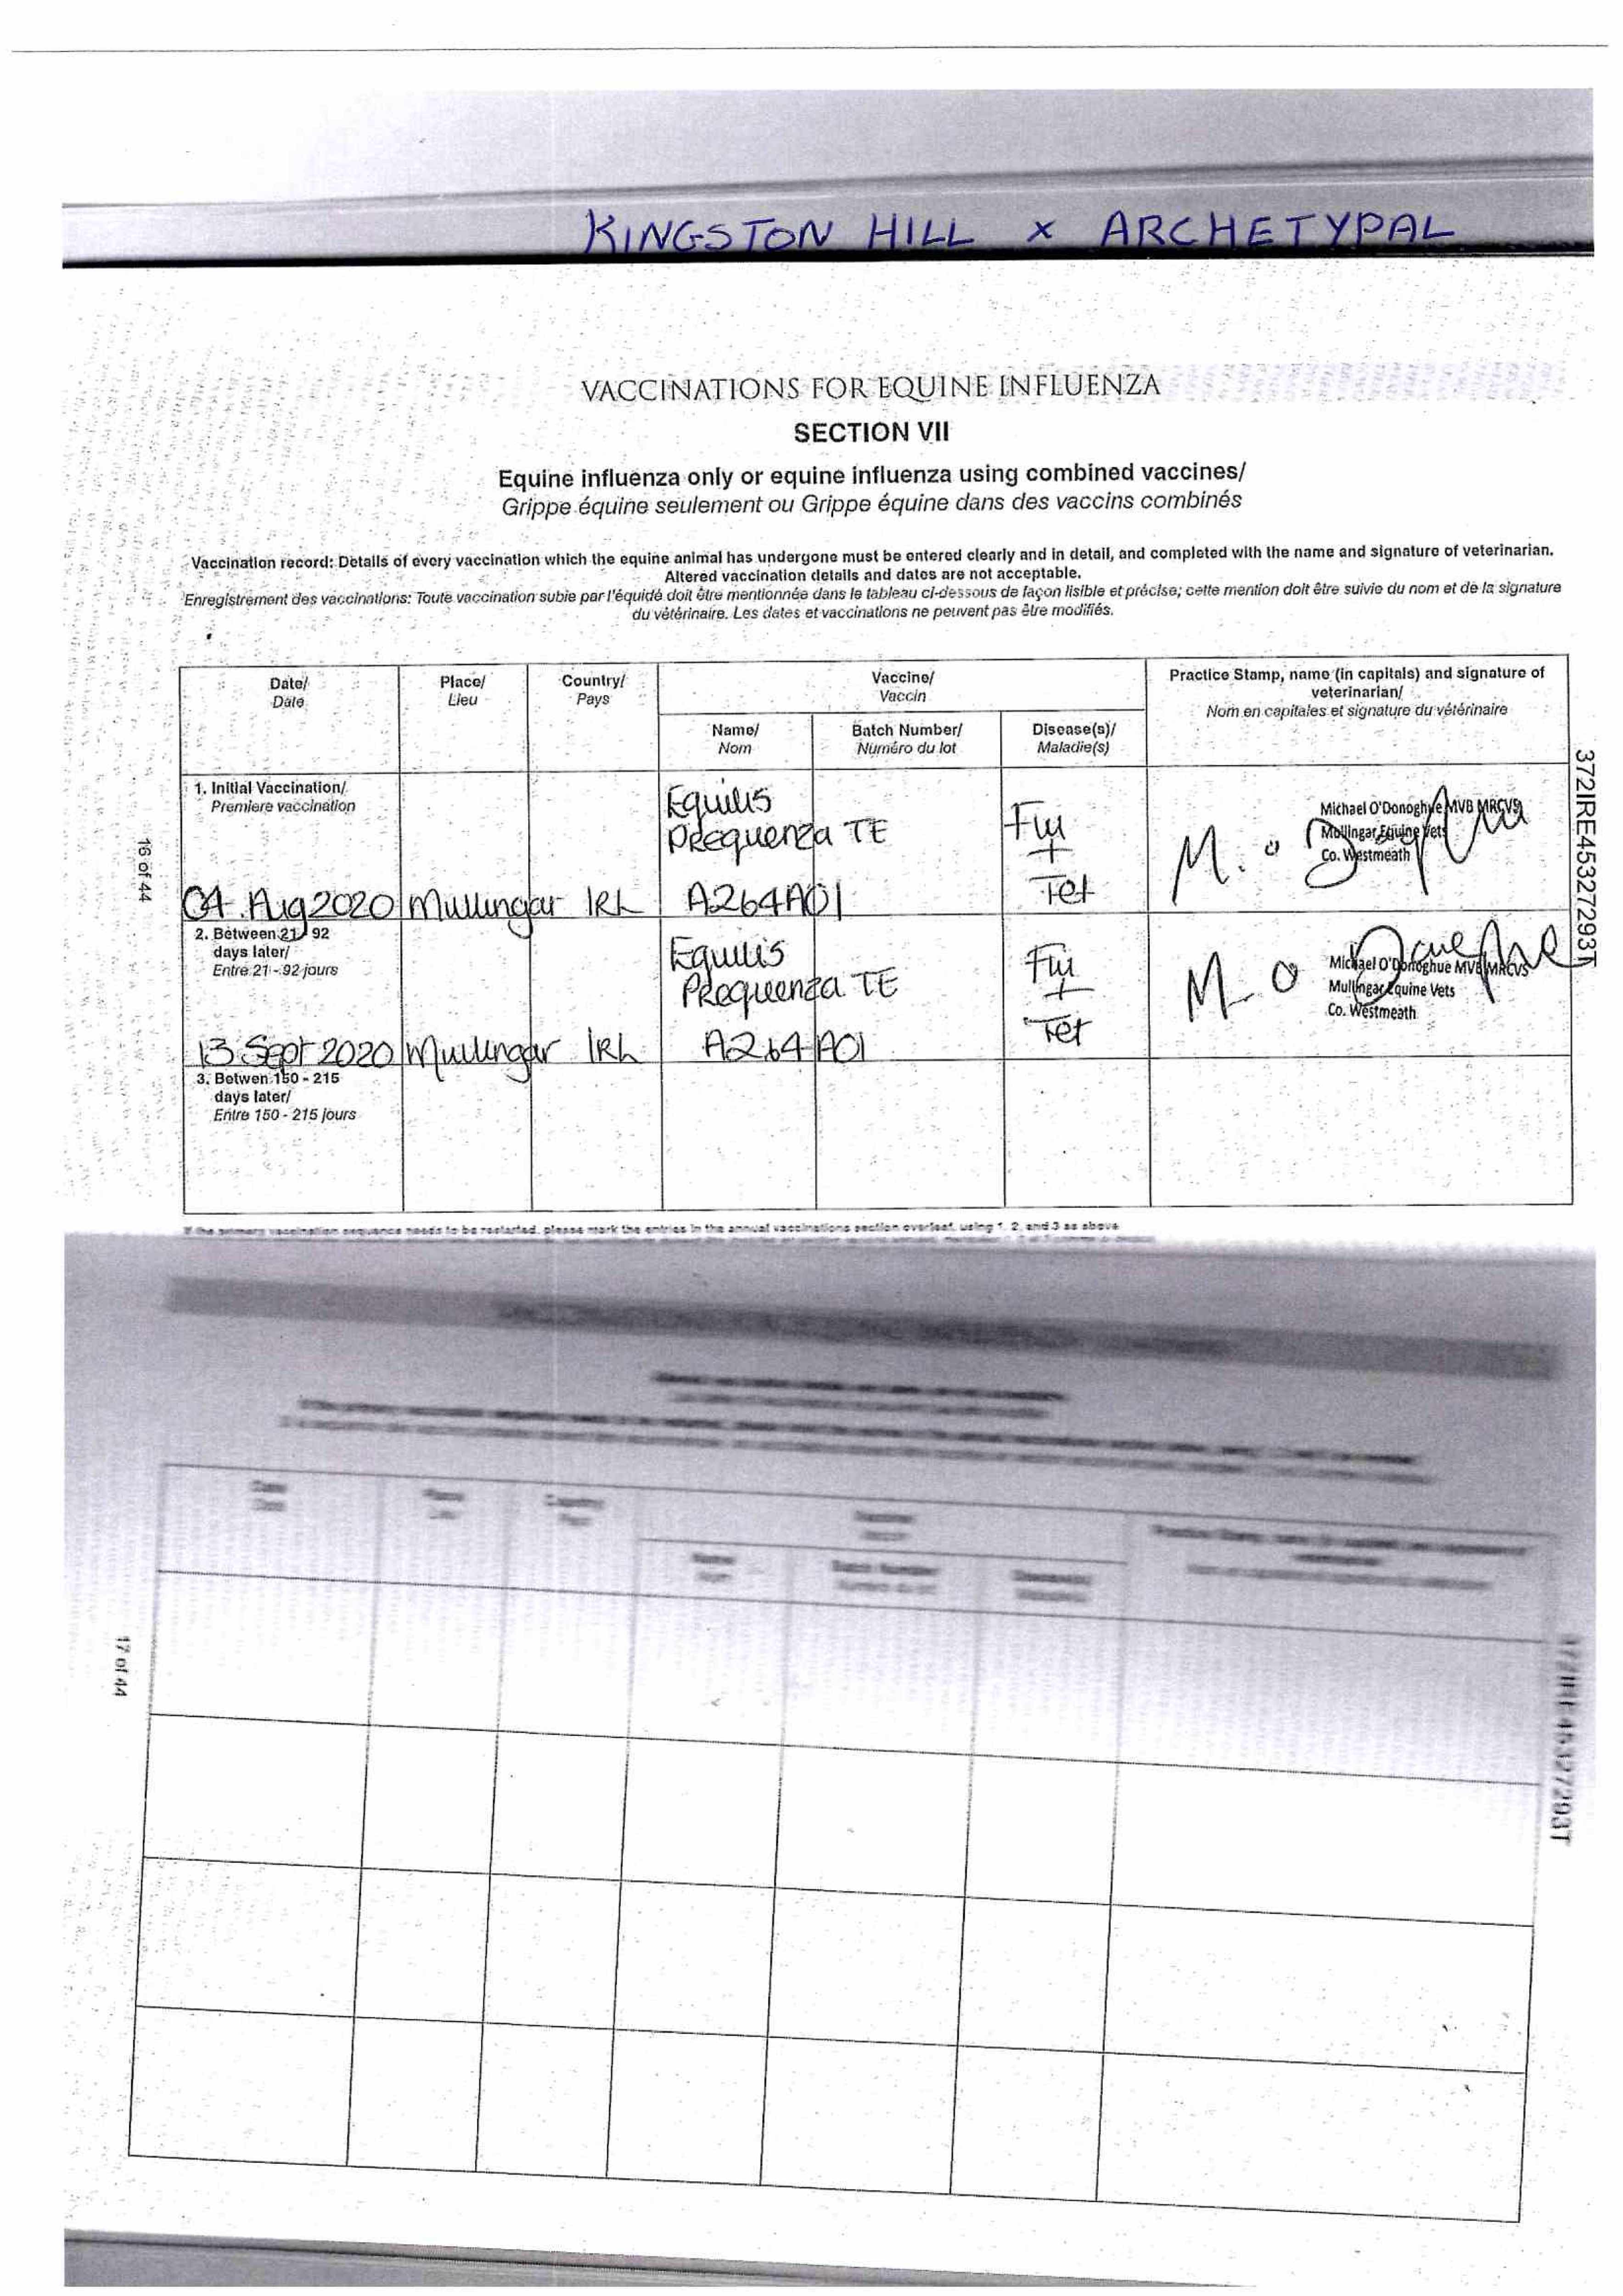 KINGSTON HILL x ARCHETYPAL
VACCINATIONS FOR EQUINE INFLUENZA
SECTION VII
Equine influenza only or equine influenza using combined vaccines/
Grippe équine seulement ou Grippe équine dans des vaccins combinés
Vaccination record: Details of every vaccination which the equine animal has undergone must be entered clearly and in detail, and completed with the name and signature of veterinarian.
Altered vaccination details and dates are not acceptable.
Enregistrement des vaccinations: Toute vaccination subie par l'équidé doit être mentionnée dans le tableau ci-dessous de façon lisible et précise; cette mention doit être suivie du nom et de la signature
du vétérinaire. Les dates et vaccinations ne peuvent pas être modifiés.
Date/ Place/ Country/ Vaccine/ Practice Stamp, name (in capitals) and signature of
Date Lieu Pays Vaccin veterinarian/
Nom en capitales et signature du vétérinaire
Name/ Batch Number/ Disease(s)/
Nom Numéro du lot Maladie(s)
1. Initial Vaccination/
Premiere vaccination
Equilis
Prequenza TE
Flu
+
Tet
Michael O'Donoghue MVB MRCVS
Mullingar Equine Vets
Co. Westmeath
04 Aug 2020 Mullingar IRL A264A01
2. Between 21 - 92
days later/
Entre 21 - 92 jours
Equilis
Prequenza TE
Flu
+
Tet
Michael O'Donoghue MVB MRCVS
Mullingar Equine Vets
Co. Westmeath
13 Sept 2020 Mullingar IRL A264A01
3. Betwen 150 - 215
days later/
Entre 150 - 215 jours
If the primary vaccination sequence needs to be restarted, please mark the entries in the annual vaccinations section overleaf, using 1, 2, and 3 as above
16 of 44
372IRE45327293T
Date
Place
Country
Name
Batch Number
17 of 44
372IRE45327293T